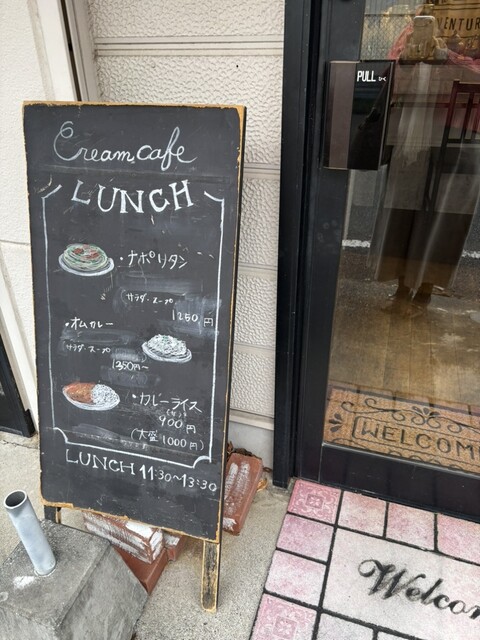 Cream cafe
LUNCH
・ナポリタン
サラダ・スープ
1250円
・オムカレー
サラダ・スープ
1350円〜
・カレーライス
900円
(大盛1000円)
LUNCH 11:30〜13:30
PULL
VENTUR
WELCOM
Welcom